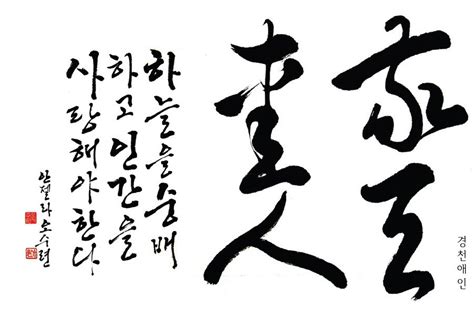 敬天
愛人
경천애인
하늘을숭배
하고인간을
사랑해야한다
안젤라오수련